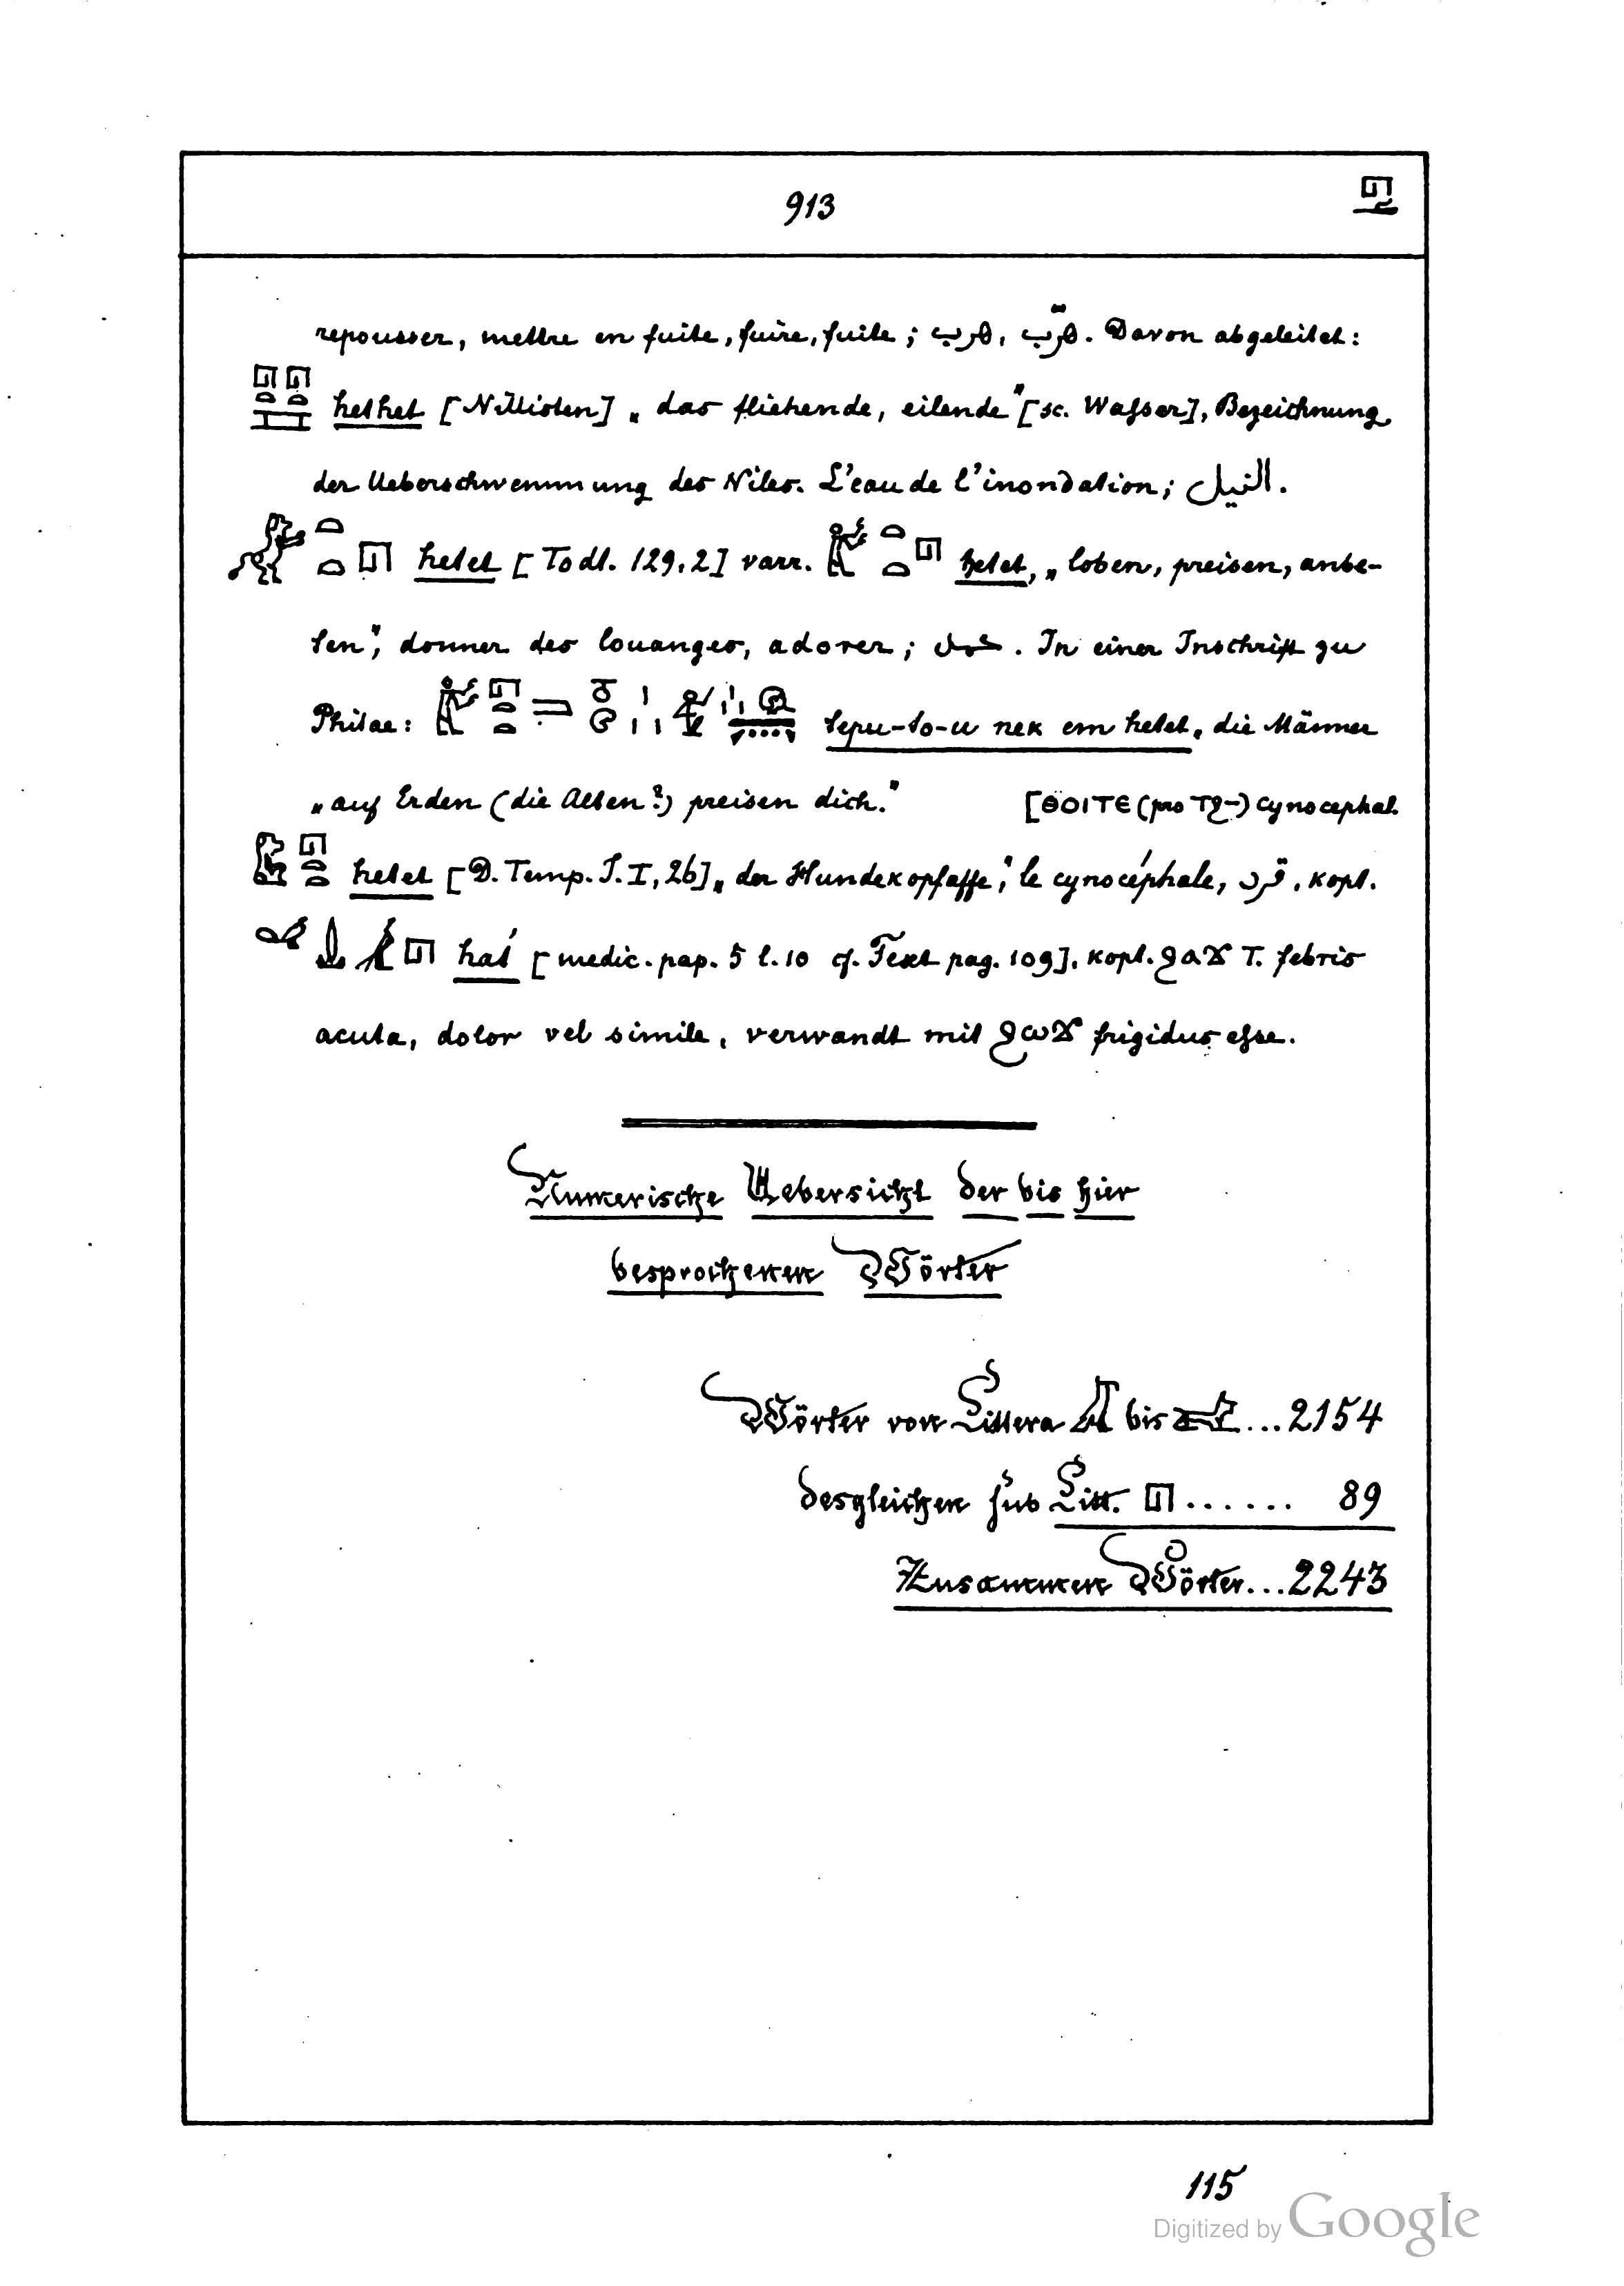 913
repousser, mettre en fuite, fuire, fuite; هرب, هرّب. Davon abgeleitet:
hethet [Nillisten] „das fliehende, eilende" [sc. Wasser], Bezeichnung
der Ueberschwemmung des Niles. L'eau de l'inondation; النيل.
hetet [Todt. 129,2] varr. hetet, „loben, preisen, anbe-
ten", donner des louanges, adorer; . In einer Inschrift zu
Philae: tepu-to-u nek em hetet, die Männer
„auf Erden (die Alten?) preisen dich." [ΘΟΙΤΕ (pro Tϩ-) cynocephal.
hetet [D. Temp. I. I, 26] „der Hundekopfaffe", le cynocéphale, قرد, kopt.
hat́ [medic. pap. 5 l. 10 cf. Text pag. 109], kopt. ϩαϫ T. febris
acuta, dolor vel simile, verwandt mit ϩωϫ frigidus esse.
Numerische Uebersicht der bis hier
besprochenen Wörter
Wörter von Littera 𓄿 bis ...2154
desgleichen sub Litt. 𓉔...... 89
Zusammen Wörter...2243
115
Digitized by Google